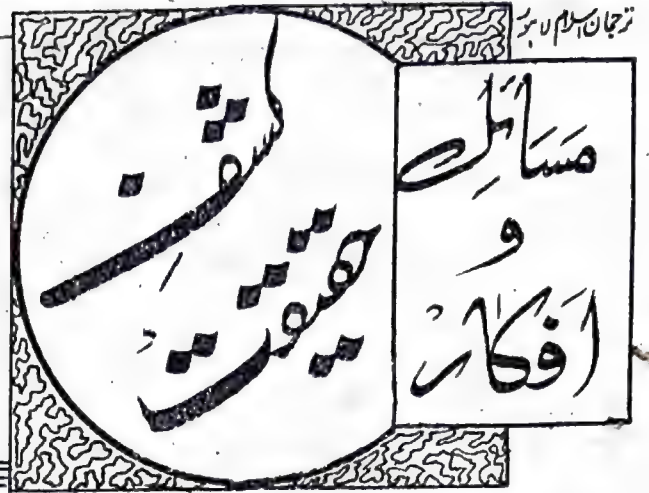 ترجمان اسلام لاہور
مسائل
و
افکار
کشفِ
حقیقت